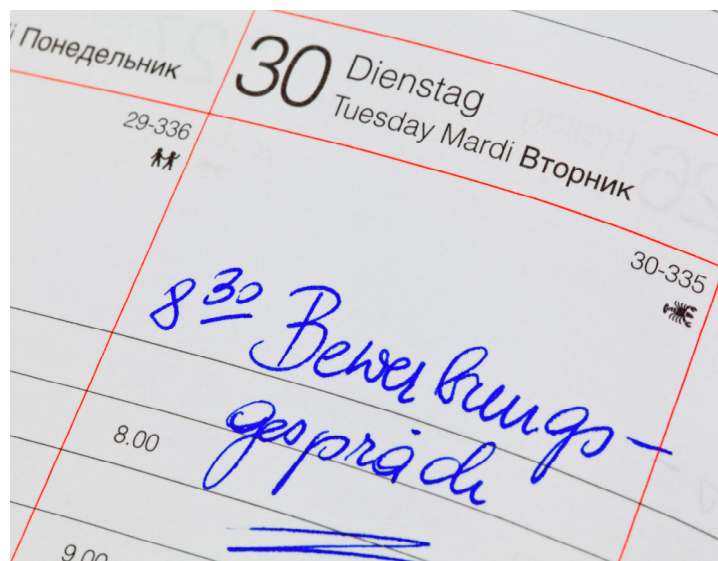 i Понедельник
29-336
30
Dienstag
Tuesday Mardi Вторник
30-335
8 30 Bewerbungs-
gespräch
8.00
9.00